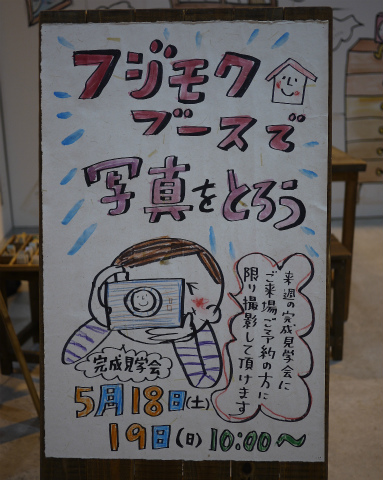 フジモク
ブースで
写真をとろう
来週の完成見学会に
ご来場ご予約の方に
限り撮影して頂けます
完成見学会
5月18日(土)
19日(日)10:00〜